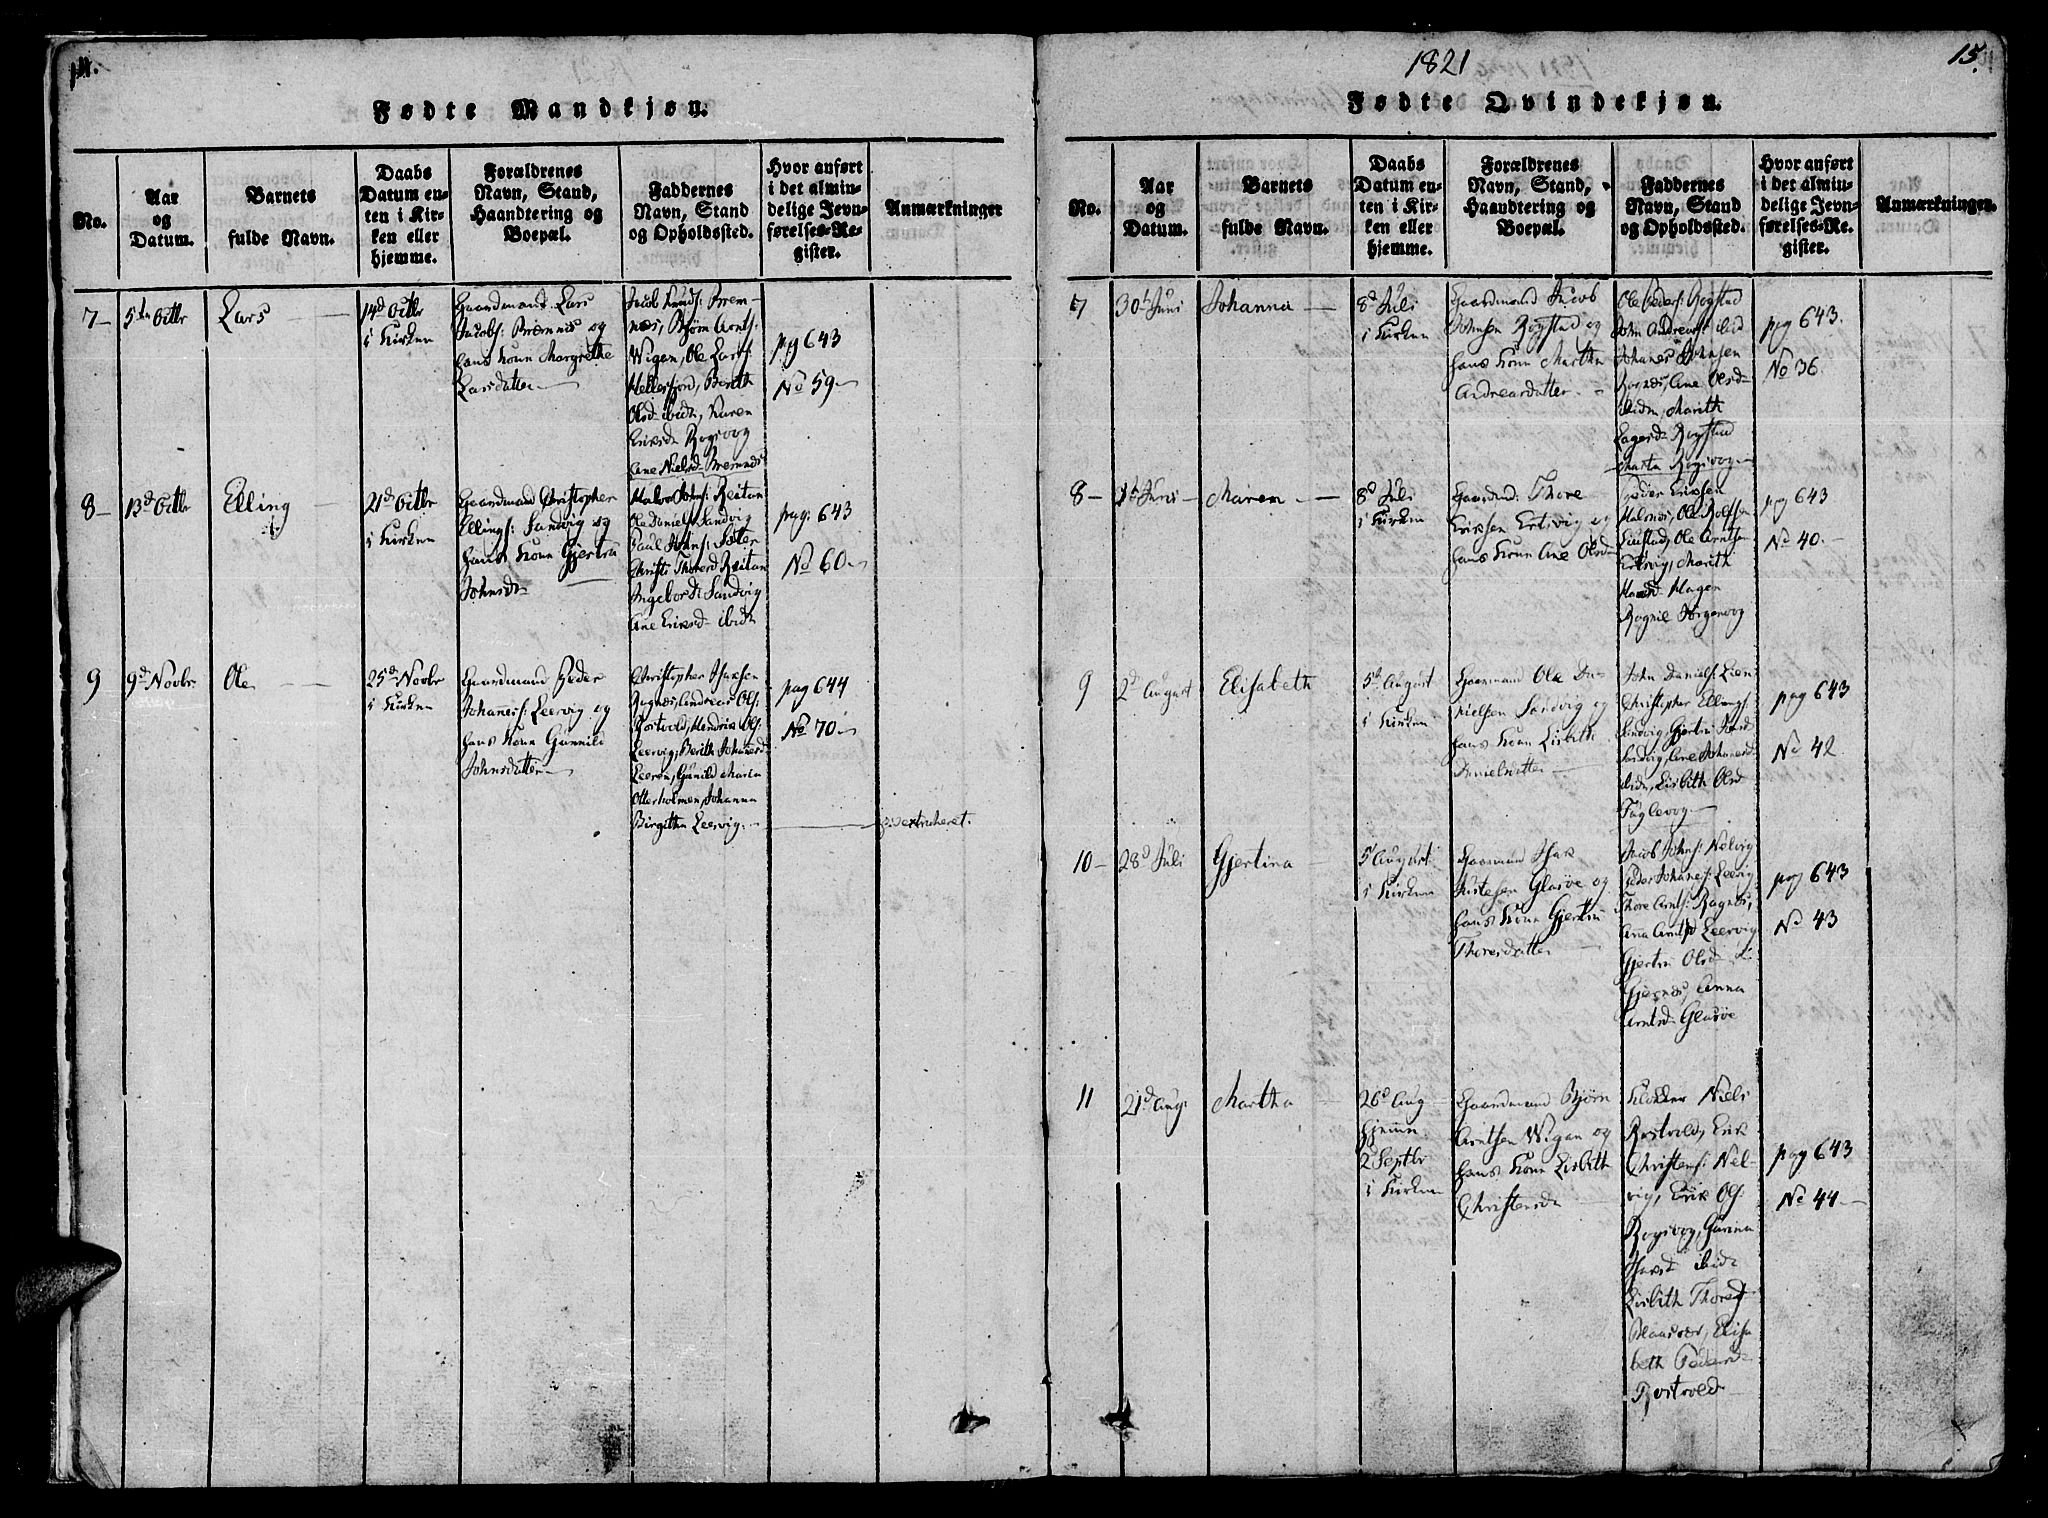 14.
Fødte Mandkjøn.
No.
Aar
og
Datum.
Barnets
fulde Navn.
Daabs
Datum en-
ten i Kir-
ken eller
hjemme.
Forældrenes
Navn, Stand,
Haandtering og
Boepæl.
Faddernes
Navn, Stand
og Opholdssted.
Hvor anført
i det almin-
delige Jevn-
førelses-Re-
gister.
Anmærkninger
7
Lars
14d Octbr
i Kirken
Gaardmand Lars
Jacobs: Bremnes og
hans Kone Margrethe
Larsdatter
Jacob Knuds: Brem-
nes, Bjørn Arnts:
Wigen, Ole Lars:
Hellesfjord, Berith
Olsd ibidm, Karen
Eriksd Rogsvog
Ane Nielsd Bremnes
pag 643
No 59
8
13d Octbr
Elling
21d Octbr
i Kirken
Gaardmand Christopher
Ellings: Sandvig og
hans Kone Gjertru
Johnsdt
Johns: Reitan
Ole Daniels: Sandvig
Paul Johns:
Thored Reitan
Ingebor Sandvig
Ane Eriksd ibidm
pag: 643
No 60
9
9d Novbr
Ole
25d Novbr
i Kirken
Gaardmand Peder
Johanes: Leervig og
hans Kone Gunnild
Johnsdatter
Christopher Isaksen
Ragnes, Andreas Ols:
Rostvold, Hendrik Ols:
Leervig, Berith Johannesd
Leeren, Gunild Maria
Otterholmen, Johanna
Birgitha Leervig.
pag 644
No 70
extraheret.
1821
15.
Fødte Qvindekjøn.
No.
Aar
og
Datum.
Barnets
fulde Navn.
Daabs
Datum en-
ten i Kir-
ken eller
hjemme.
Forældrenes
Navn, Stand,
Haandtering og
Boepæl.
Faddernes
Navn, Stand
og Opholdssted.
Hvor anført
i det almin-
delige Jevn-
førelses-Re-
gister.
Anmærkninger.
7
30t Juni
Johanna
8d Juli
i Kirken
Gaardmand Jacob
Johnsen Rogstad og
hans Kone Martha
Andreasdatter
Ole Peders: Rogstad
John Andreas: ibid
Johanes Johnsen
Ragnes, Ane Olsd
ibidm, Marith
Rogstad
Marta Rogsvog
pag 643.
No 36.
8
1t Juni
Maren
8d Juli
i Kirken
Gaardmd: Thore
Eriksen Ertsvig og
hans Kone Ane Olsd
Peder Eriksen
Ole Rolfsen
Ole Arntsen
Ertsvig, Marith
Hagen
Ragnil Jørgenvog
pag 643
No 40.
9
2d August
Elisabeth
5t August
i Kirken
Gaarmand Ole Da-
nielsen Sandvig og
hans Kone Lisbeth
Danielsdatter
John Daniels: Lien
Christopher Ellings:
Sandvig, Gjertru Johnsd
Sandvig, Ane Johanesd
ibidm, Lisbith Olsd
Fuglevog
pag 643
No 42
10
28d Juli
Gjertina
5t August
i Kirken
Gaarmand Isak
Justesen Glasøe og
hans Kone Gjertru
Thoresdatter
Jacob Johns: Nelvig
Peder Johanes: Leervig
Thore Arnts: Ragnes,
Anna Arntsd Leervig
Gjertru Olsd
Gjernes, Anna
Arntsd Glasøe
pag 643
No 43
11
21d Aug:
Martha
26d Aug
hjemme
2 Septbr
i Kirken
Gaardmand Bjørn
Arntsen Wigan og
hans Kone Lisbith
Christensd
Klokker Niels
Rostvold, Erik
Christens: Nel-
vig, Erik Ols:
Rogsvog, Gurina
Isaksd ibidm
Lisbith Thoresd
Elisa
beth Pedersd
Rostvold
pag 643
No 44